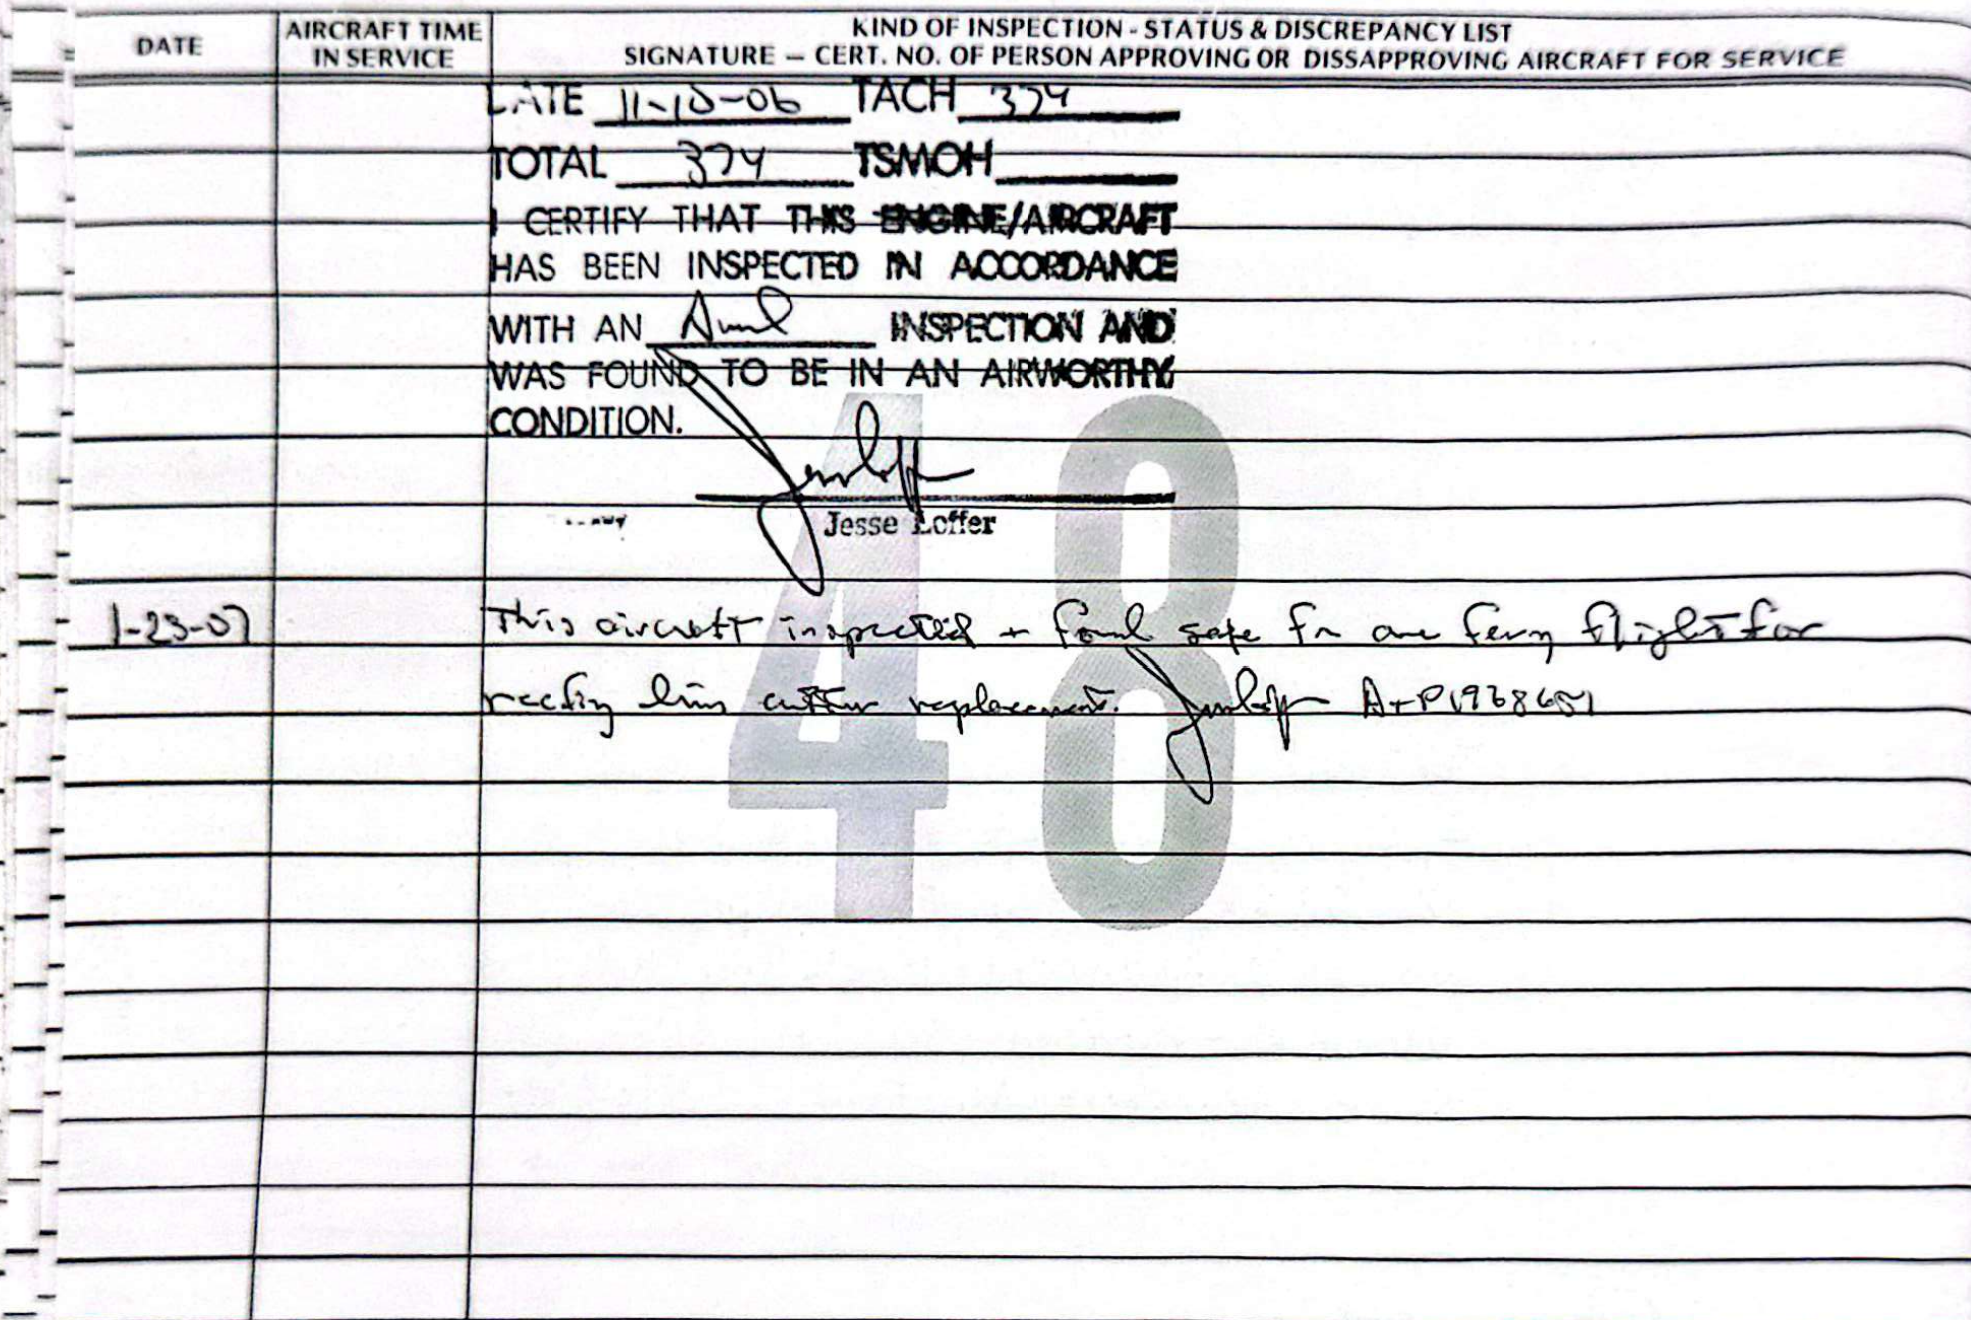 DATE
AIRCRAFT TIME
IN SERVICE
KIND OF INSPECTION - STATUS & DISCREPANCY LIST
SIGNATURE — CERT. NO. OF PERSON APPROVING OR DISSAPPROVING AIRCRAFT FOR SERVICE
DATE 11-10-06 TACH 374
TOTAL 374 TSMOH
I CERTIFY THAT THIS ENGINE/AIRCRAFT
HAS BEEN INSPECTED IN ACCORDANCE
WITH AN Annual INSPECTION AND
WAS FOUND TO BE IN AN AIRWORTHY
CONDITION.
Jesse Loffer
48
1-23-07
This aircraft inspected + found safe for one ferry flight for
reefing line cutter replacement. A+P